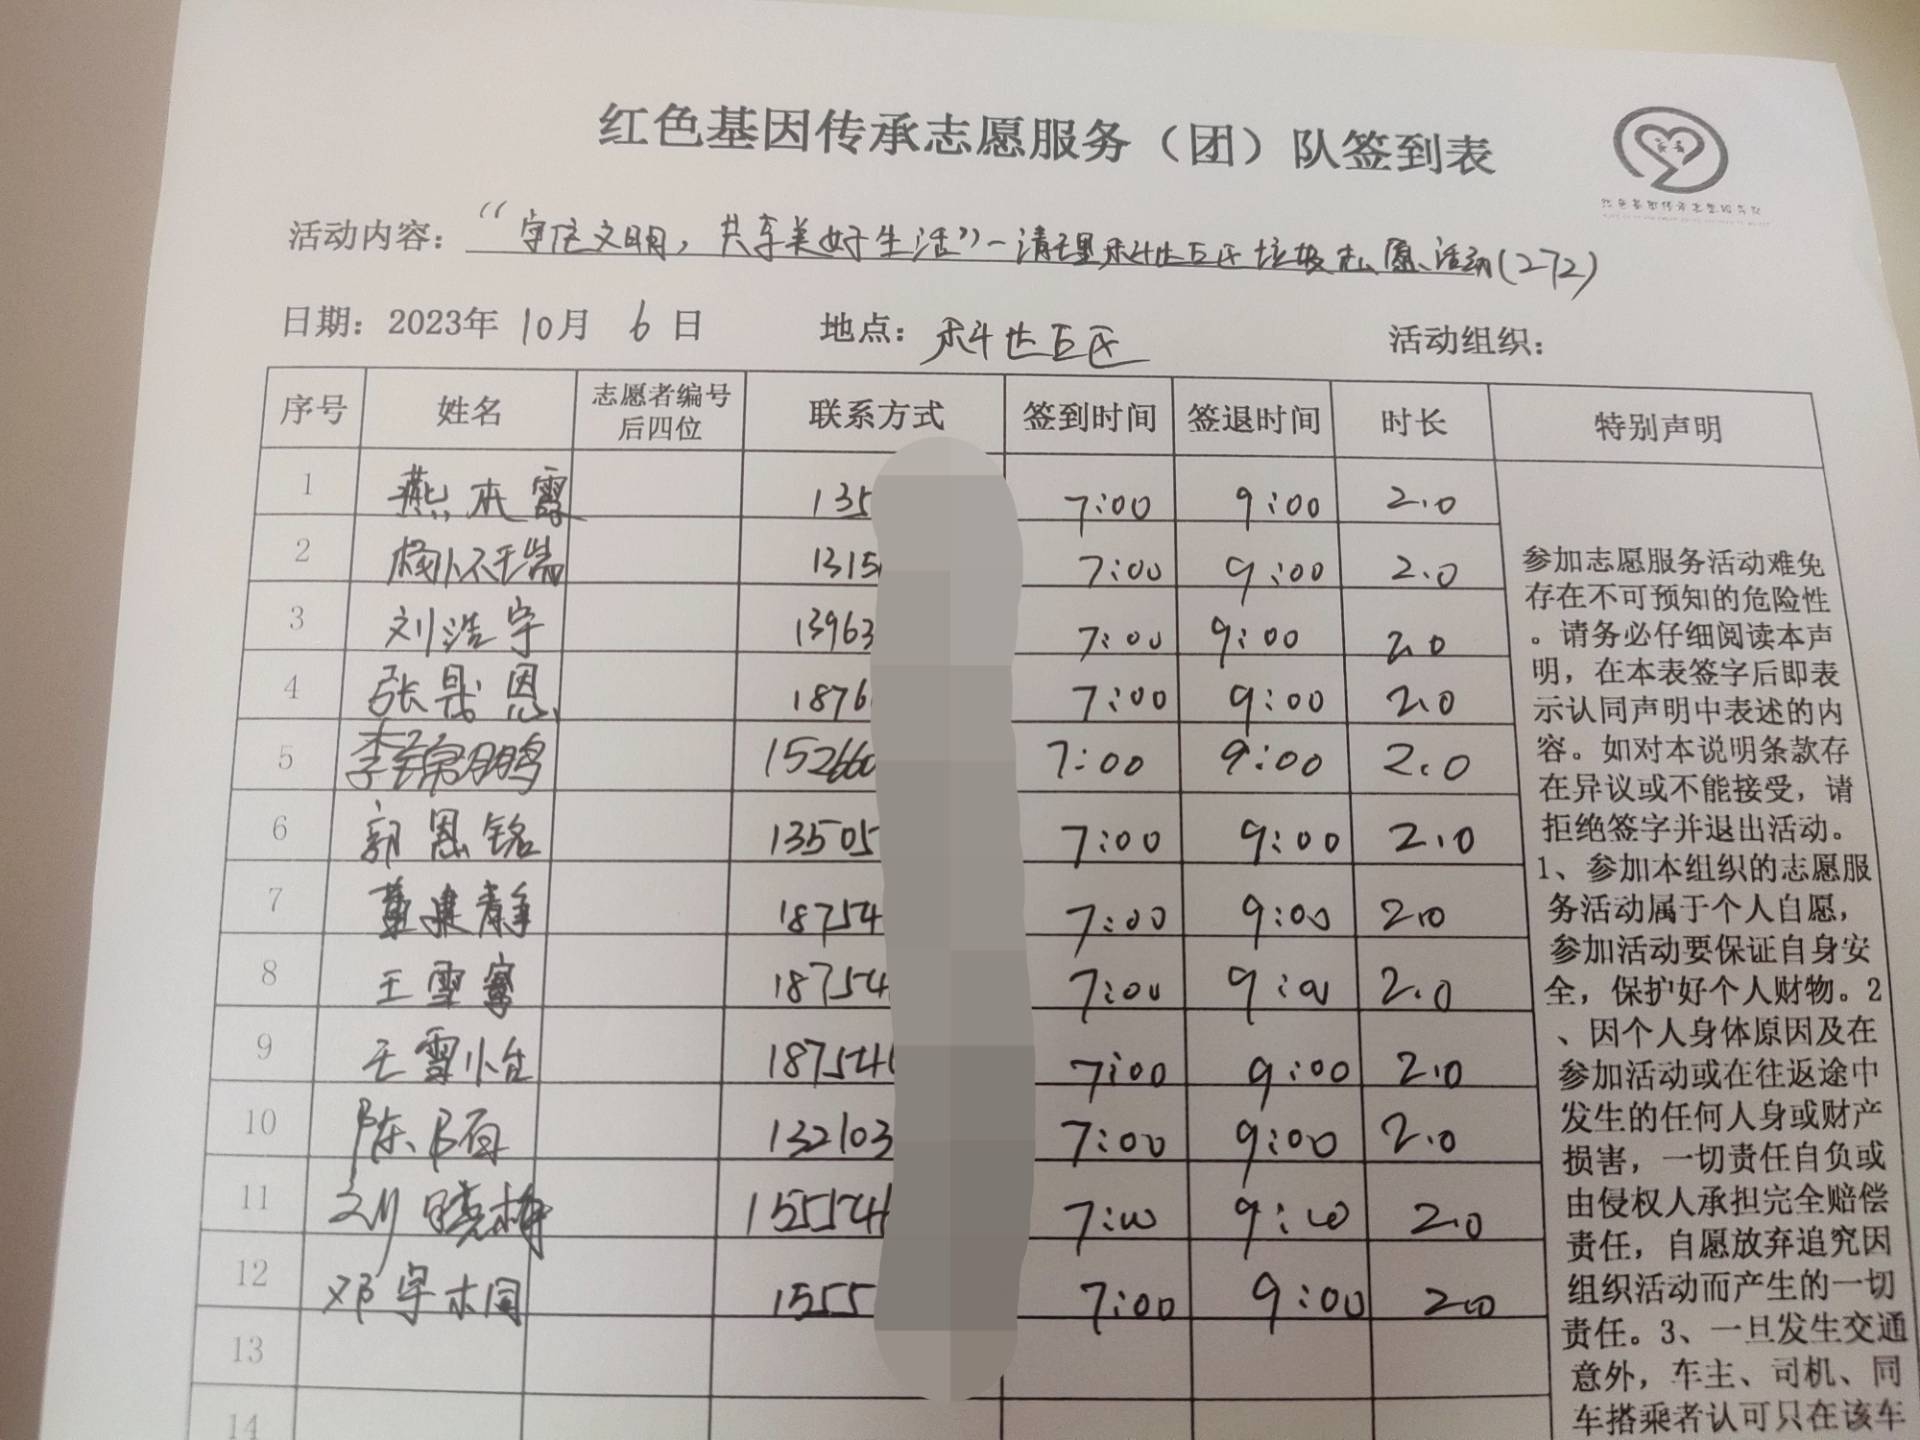 红色基因传承志愿服务（团）队签到表
活动内容：“守住文明，共享美好生活”－清理科世古区垃圾志愿活动(272)
日期：2023年10月6日 地点：科世古区 活动组织：
序号 姓名 志愿者编号后四位 联系方式 签到时间 签退时间 时长 特别声明
1 燕本霞 135 7:00 9:00 2.0
2 1315 7:00 9:00 2.0
3 刘浩宇 13963 7:00 9:00 2.0
4 张晟恩 1876 7:00 9:00 2.0
5 李锦鹏 152660 7:00 9:00 2.0
6 郭恩铭 13505 7:00 9:00 2.0
7 董建静 18754 7:00 9:00 2.0
8 王雪 18754 7:00 9:00 2.0
9 王雪怡 187546 7:00 9:00 2.0
10 陈陌 132103 7:00 9:00 2.0
11 刘晓梅 155474 7:00 9:00 2.0
12 邓宇桐 1555 7:00 9:00 2.0
13
14
参加志愿服务活动难免
存在不可预知的危险性
。请务必仔细阅读本声
明，在本表签字后即表
示认同声明中表述的内
容。如对本说明条款存
在异议或不能接受，请
拒绝签字并退出活动。
1、参加本组织的志愿服
务活动属于个人自愿，
参加活动要保证自身安
全，保护好个人财物。2
、因个人身体原因及在
参加活动或在往返途中
发生的任何人身或财产
损害，一切责任自负或
由侵权人承担完全赔偿
责任，自愿放弃追究因
组织活动而产生的一切
责任。3、一旦发生交通
意外，车主、司机、同
车搭乘者认可只在该车